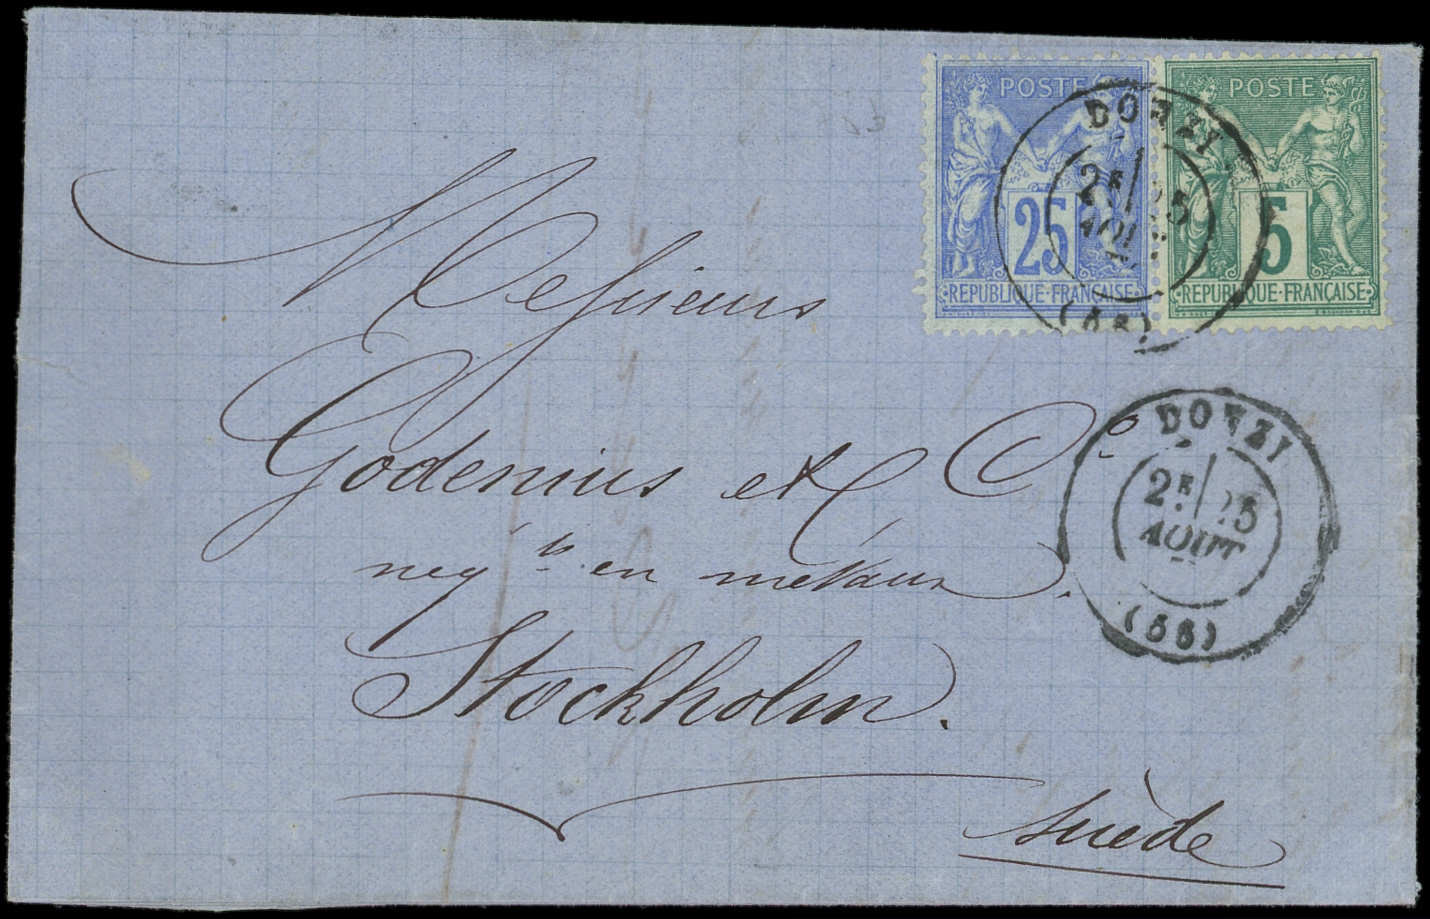 POSTE
25
REPUBLIQUE·FRANÇAISE
POSTE
5
REPUBLIQUE·FRANÇAISE
DONZI
2E 25
AOUT
(58)
Messieurs
Godenius et Cie
négts en métaux
Stockholm.
Suède
DONZI
2E 25
AOUT
(58)